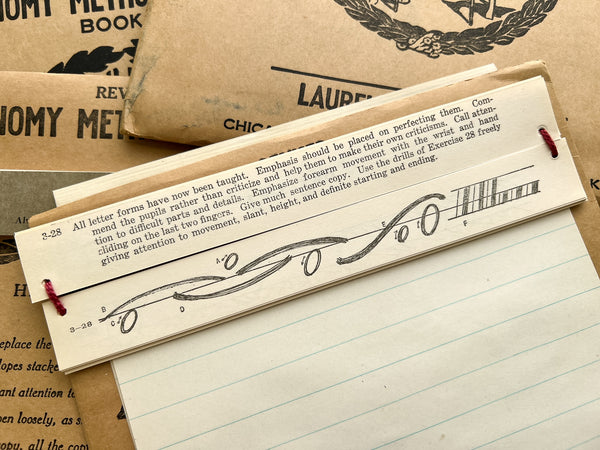 NOMY METHO
BOOK
REV
NOMY MET
LAUREN
CHICA
3-28 All letter forms have now been taught. Emphasis should be placed on perfecting them. Com-
mend the pupils rather than criticize and help them to make their own criticisms. Call atten-
tion to difficult parts and details. Emphasize forearm movement with the wrist and hand
sliding on the last two fingers. Give much sentence copy. Use the drills of Exercise 28 freely
giving attention to movement, slant, height, and definite starting and ending.
3-28 B C D A E F
H
eplace the
lopes stacke
ant attention to
en loosely, as s
opy, all the cop